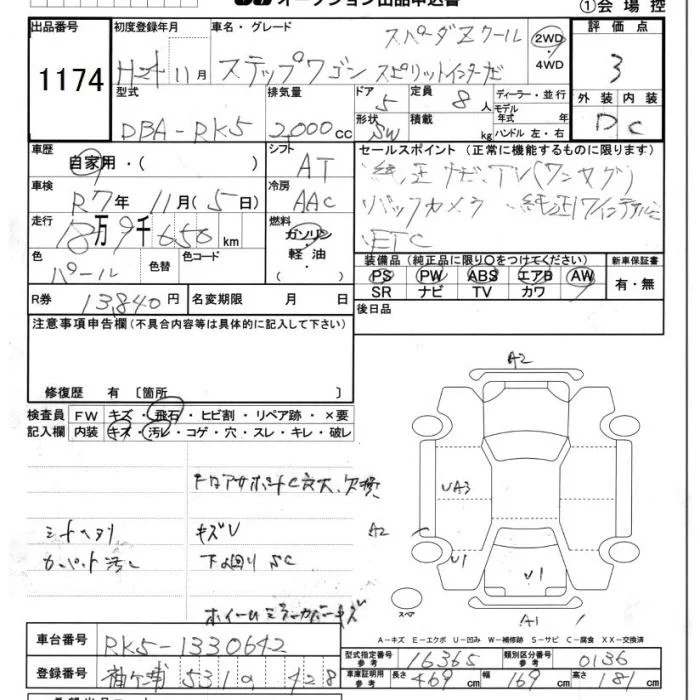 オークション出品申込書
①会場控
出品番号
1174
初度登録年月
H24 11月
車名・グレード
スパーダZクール
ステップワゴン スピリットインターナビ
2WD
4WD
評価点
3
外装 内装
D C
型式
DBA-RK5
排気量
2,000cc
ドア
5
形状
SW
定員
8人
積載
kg
ディーラー・並行
モデル年式 年式
ハンドル 左・右
車歴
自家用・( )
シフト
AT
車検
R7年 11月(5日)
冷房
AAC
走行
万9千650km
燃料
ガソリン
軽油
( )
色
パール
色替
色コード
セールスポイント(正常に機能するものに限ります)
純正ナビ、TV(ワンセグ)
バックカメラ 純正17インチアルミ
ETC
装備品(純正品に限り○をつけてください)
PS PW ABS エアB AW
SR ナビ TV カワ
新車保証書
有・無
R券
13,840円
名変期限 月 日
後日品
注意事項申告欄(不具合内容等は具体的に記入して下さい)
修復歴 有〔箇所 〕
検査員記入欄
FW キズ・飛石・ヒビ割・リペア跡・×要
内装 キズ・汚レ・コゲ・穴・スレ・キレ・破レ
シートヘタリ
カーペット汚レ
キズU
下回りSC
ホイールミラーカバーキズ
A2
UA3
A2
U1
U1
A1
スペア
A-キズ E-エクボ U-凹み W-補修跡 S-サビ C-腐食 XX-交換済
車台番号
RK5-1330642
登録番号
袖ケ浦 531 428
型式指定番号
参考
16365
類別区分番号
参考
0136
車庫証明用
参考
長さ 469cm
幅 169cm
高さ 181cm